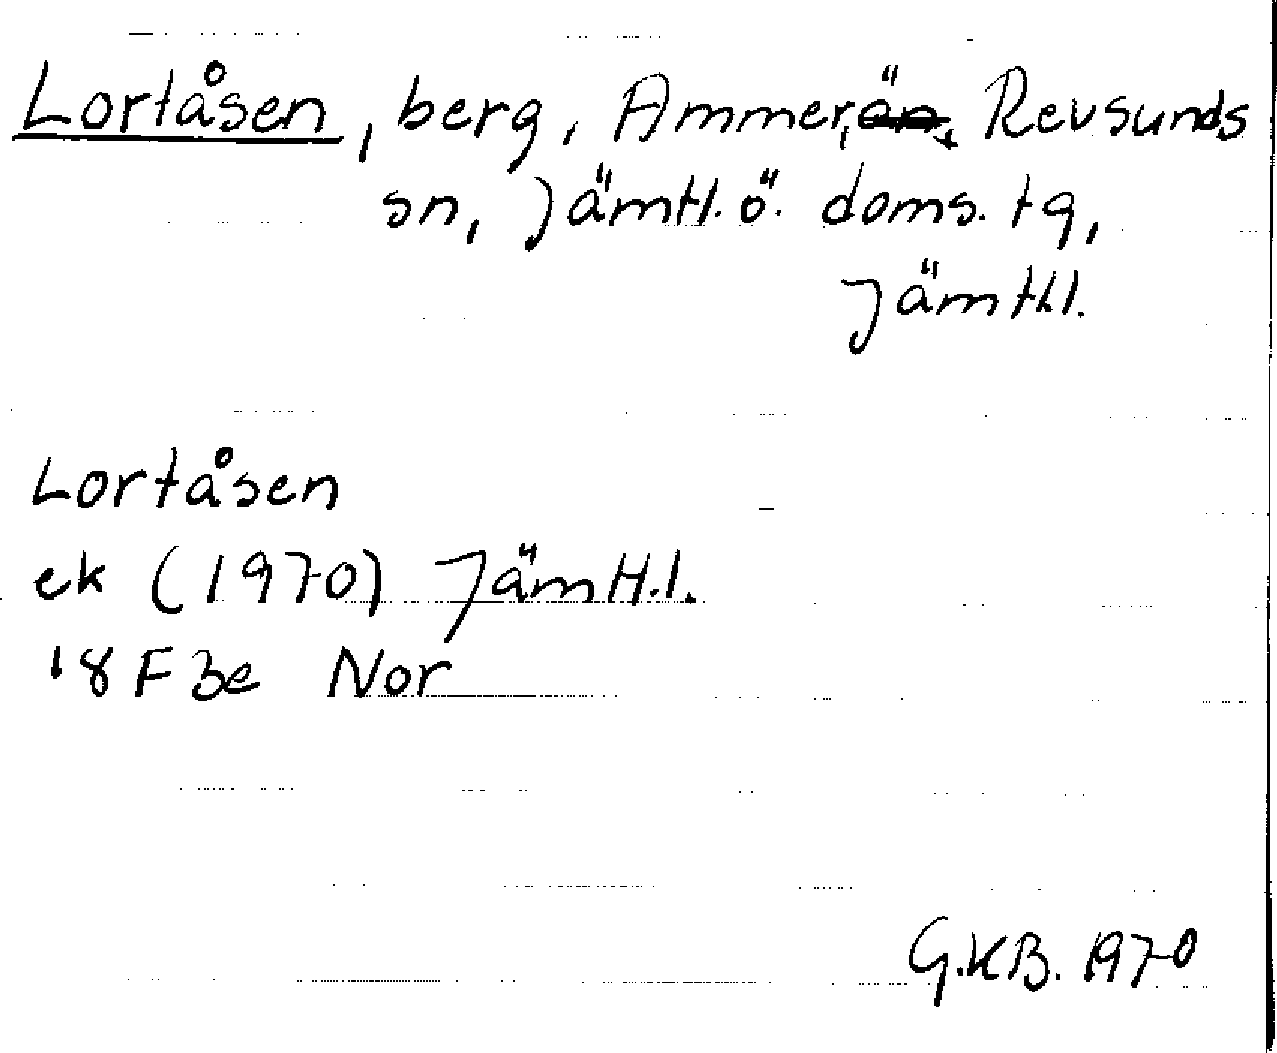 Lortåsen, berg, Ammer, Revsunds
sn, Jämtl. ö. doms. tg,
Jämtl.l.
Lortåsen
ek (1970) Jämtl.l.
18 F 3e Nor
G.KB. 1970